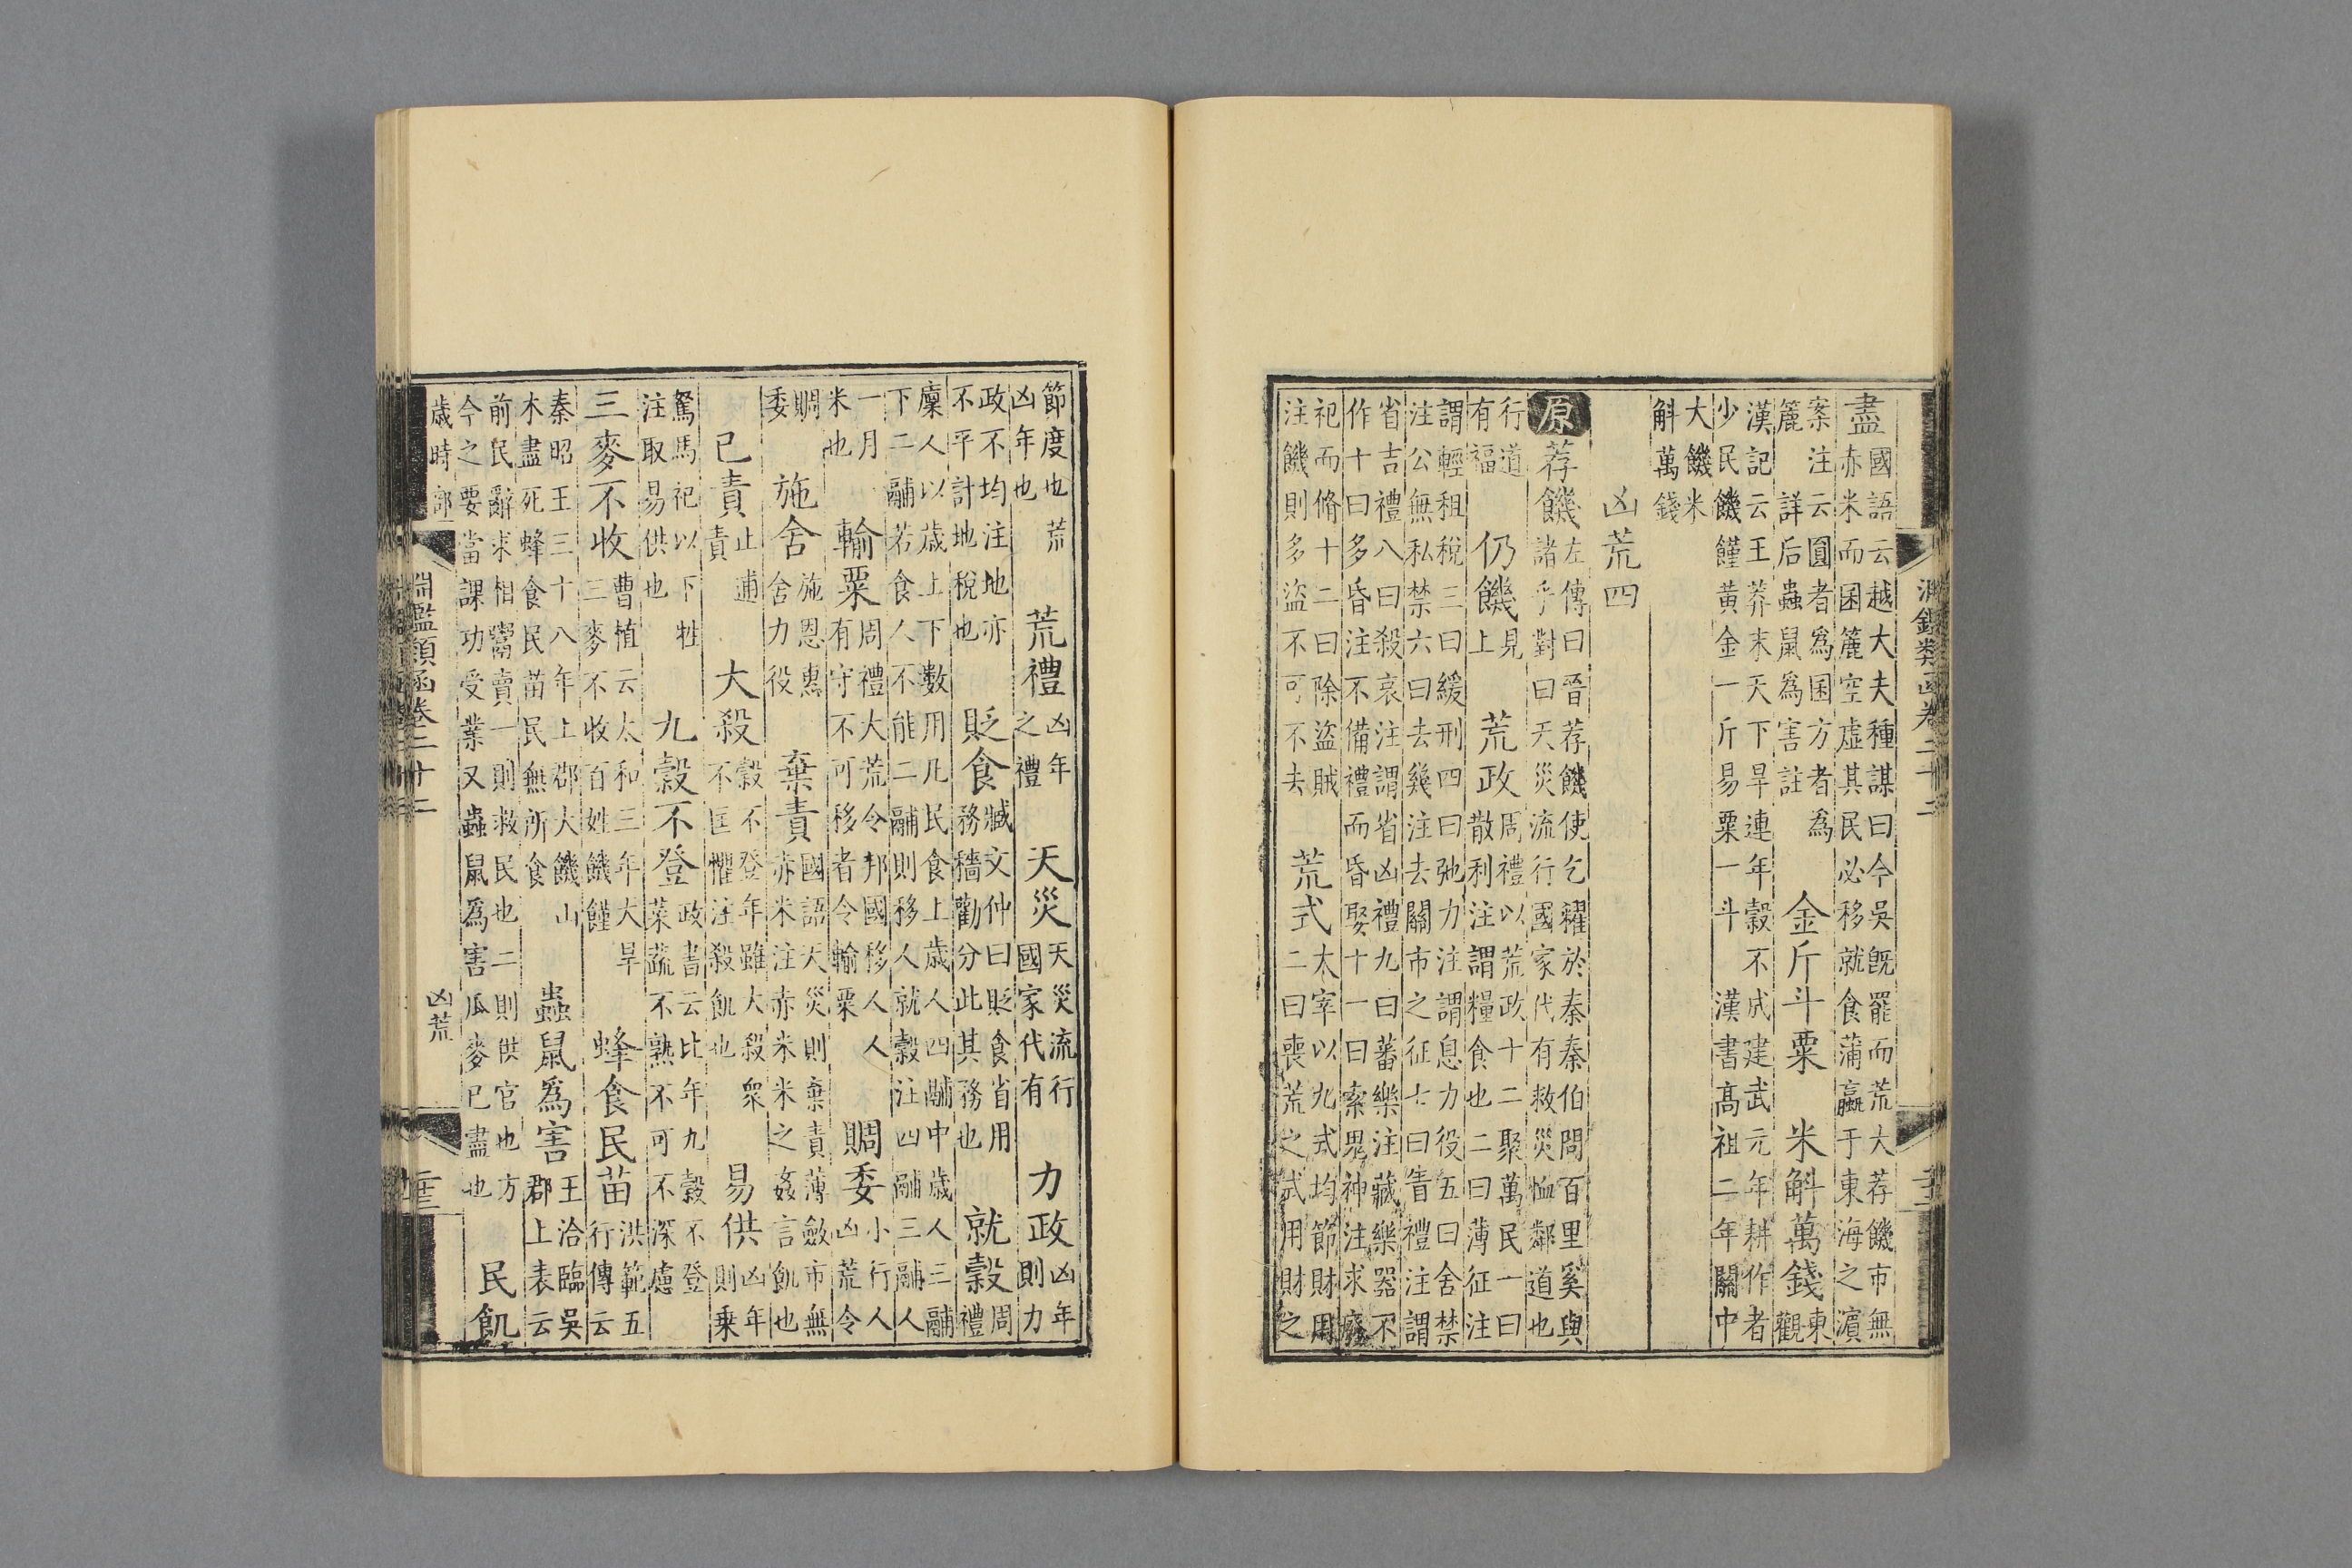 淵鑑類函卷二十二
盡
國語云越大夫種謀曰今吳旣罷而荒大荐饑市無
赤米而囷簏空虛其民必移就食蒲蠃于東海之濱
案注云圓者爲囷方者爲
簏詳后蟲鼠爲害註
金斤斗粟
米斛萬錢
東
觀
漢記云王莽末天下旱連年穀不成建武元年耕作者
少民饑饉黃金一斤易粟一斗漢書高祖二年關中
大饑米
斛萬錢
凶荒四
原荐饑
左傳曰晉荐饑使乞糴於秦秦伯問百里奚與
諸乎對曰天災流行國家代有救災恤鄰道也
行道
有福
仍饑
見
上
荒政
周禮以荒政十二聚萬民一曰
散利注謂糧食也二曰薄征注
謂輕租稅三曰緩刑四曰弛力注謂息力役五曰舍禁
注公無私禁六曰去幾注去關市之征七曰眚禮注謂
省吉禮八曰殺哀注謂省凶禮九曰蕃樂注藏樂器不
作十曰多昏注不備禮而昏娶十一曰索鬼神注求廢
祀而脩十二曰除盜賊
注饑則多盜不可不去
荒式
太宰以九式均節財用
二曰喪荒之式用財之
節度也荒
凶年也
荒禮
凶年
之禮
天災
天災流行
國家代有
力政
凶年
則力
政不均注地亦
不平計地稅也
貶食
臧文仲曰貶食省用
務穡勸分此其務也
就穀
周
禮
廩人以歳上下數用凡民食上歳人四鬴中歳人三鬴
下二鬴若食人不能二鬴則移人就穀注四鬴三鬴人
一月
米也
輸粟
周禮大荒令邦國移人人
有守不可移者令輸粟
賙委
小行人
凶荒令
賙
委
施舍
施恩惠
舍力役
棄責
國語天災則棄責薄斂市無
赤米注赤米米之姦言飢也
已責
止逋
責
大殺
穀不登年雖大殺衆
不匡懼注殺飢也
易供
凶年
則乗
駑馬祀以下牲
注取易供也
九穀不登
政書云比年九穀不登
菜蔬不熟不可不深慮
三麥不收
曹植云太和三年大旱
三麥不收百姓饑饉
蜂食民苗
洪範五
行傳云
秦昭王三十八年上郡大饑山
木盡死蜂食民苗民無所食
蟲鼠爲害
王洽臨吳
郡上表云
前民辭求相鬻賣一則救民也二則供官也方
今之要當課功受業又蟲鼠爲害瓜麥已盡也
民飢
歳時部
凶荒
淵鑑類函卷二十二